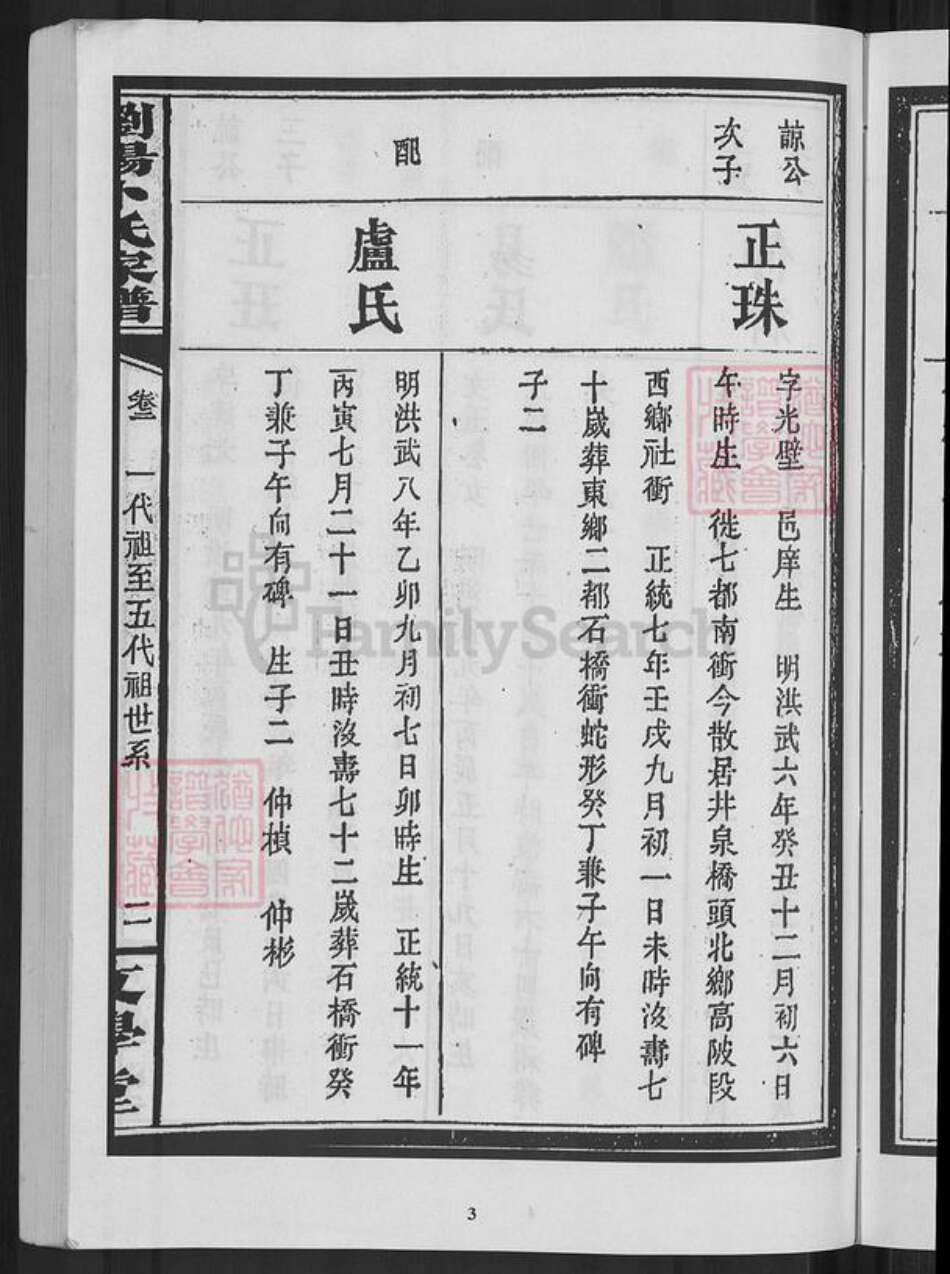 諒公
次子
正珠
字光壁 邑庠生 明洪武六年癸丑十二月初六日
午時生 徙七都南衝今散居井泉橋頭北鄉高陂段
西鄉社衝 正統七年壬戌九月初一日未時沒壽七
十歲葬東鄉二都石橋衝蛇形癸丁兼子午向有碑
子二
配
盧氏
明洪武八年乙卯九月初七日卯時生 正統十一年
丙寅七月二十一日丑時沒壽七十二歲葬石橋衝癸
丁兼子午向有碑 生子二 仲楨 仲彬
卷二 一代祖至五代祖世系 二
FamilySearch
3